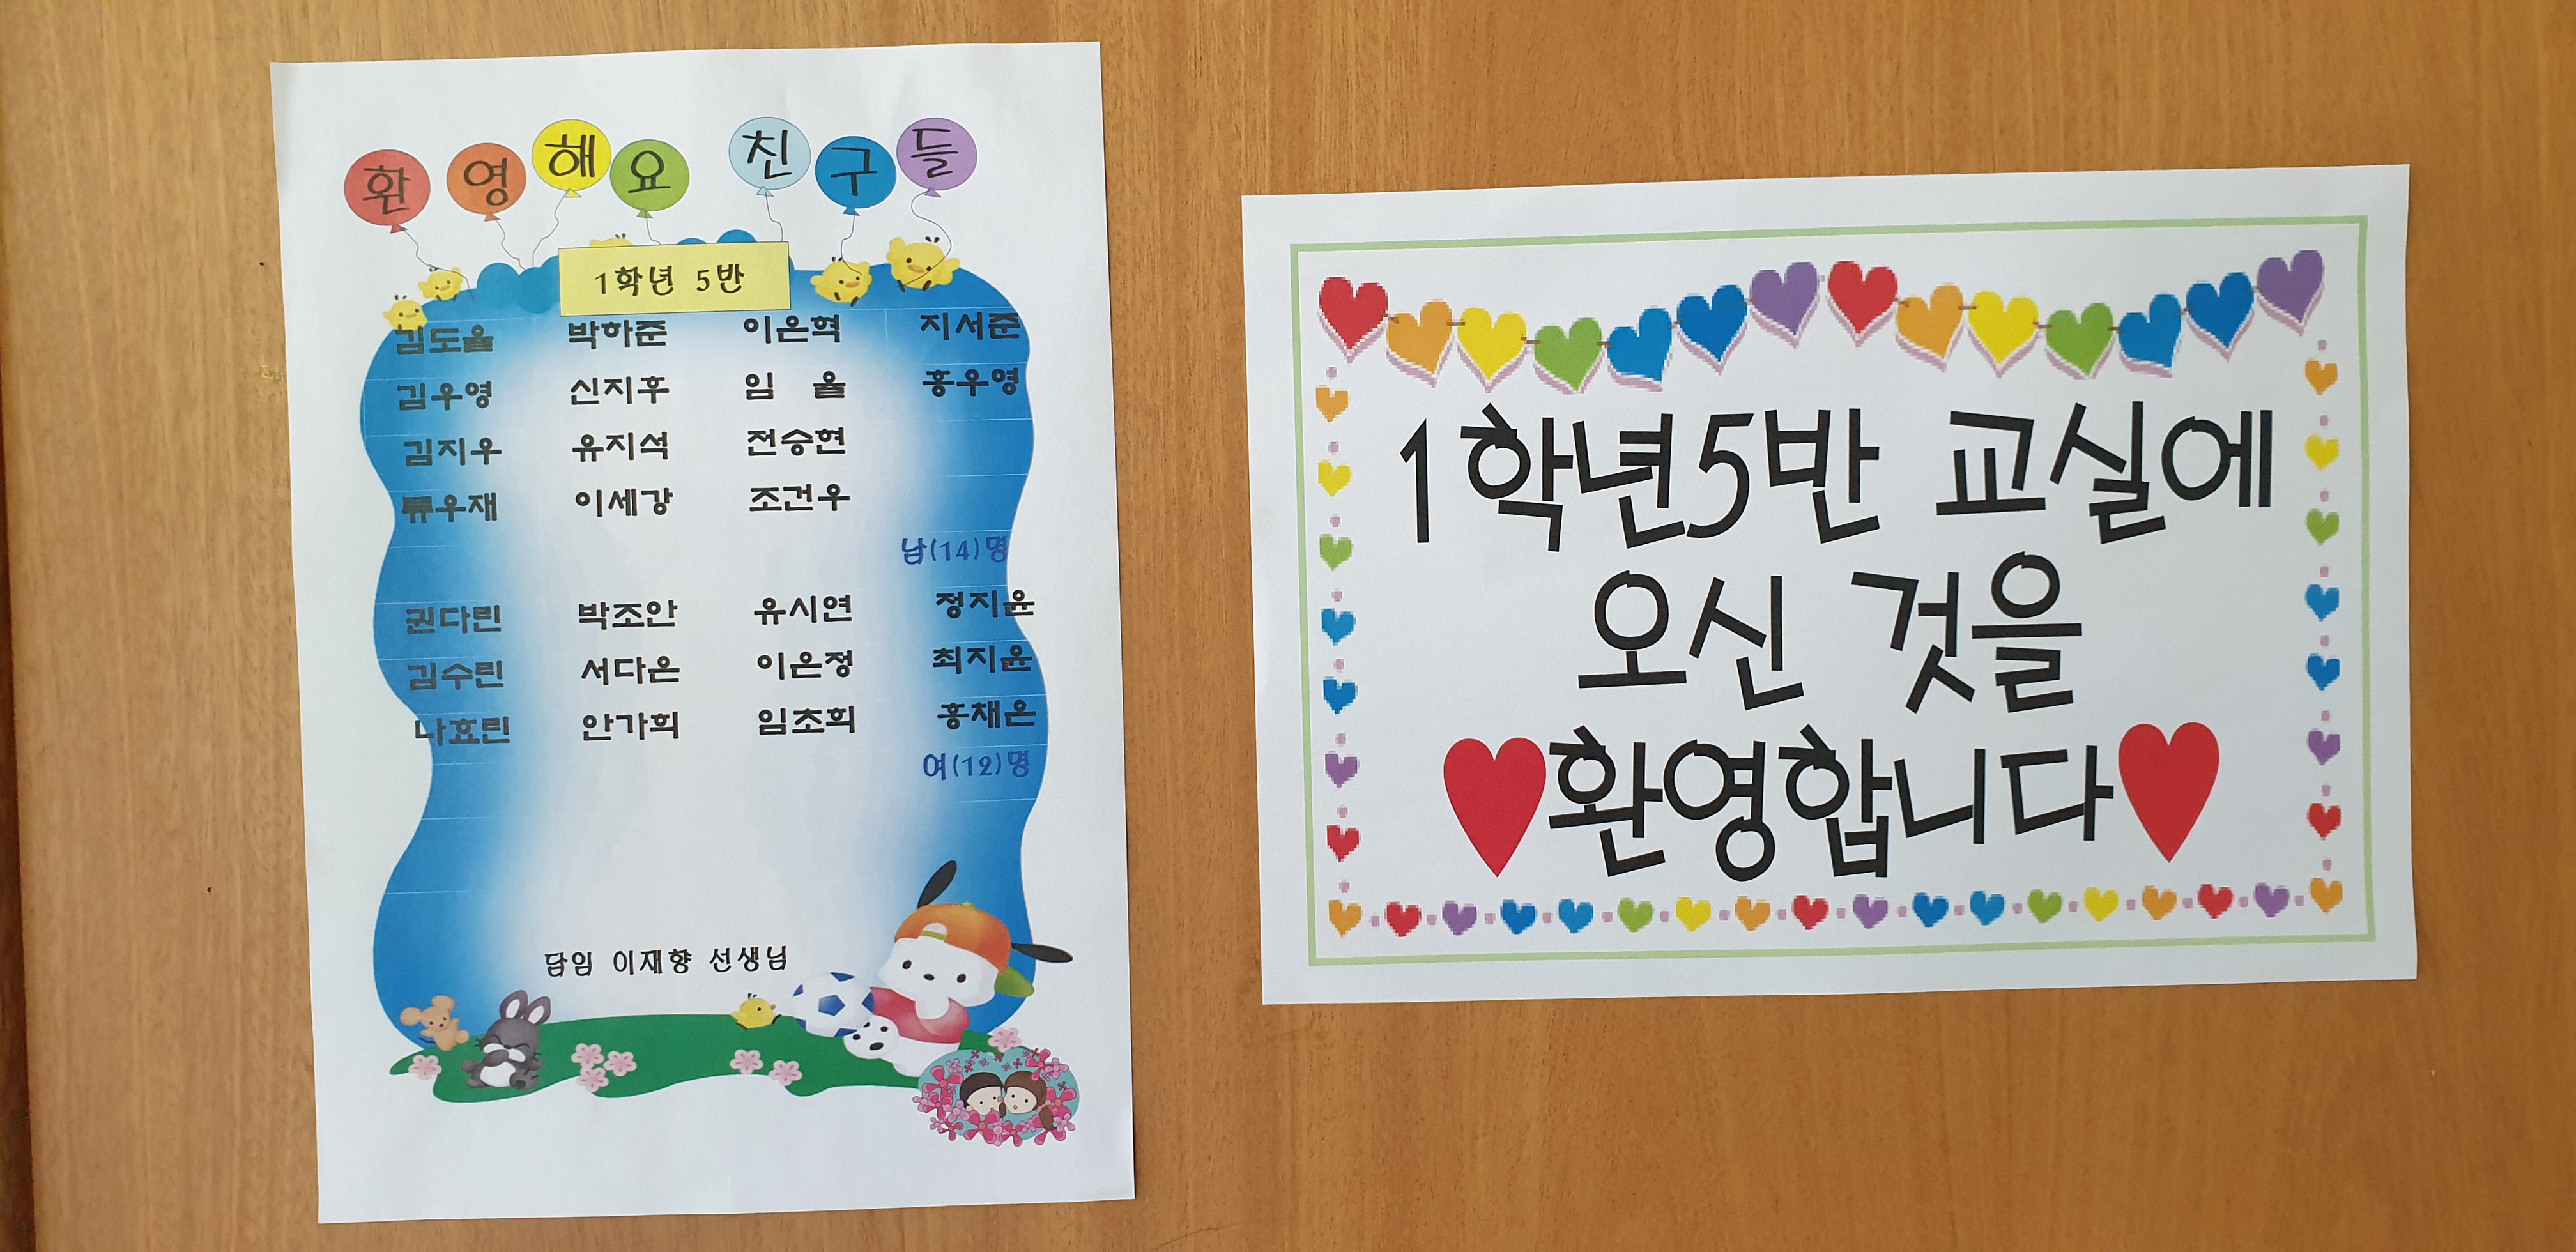 환영해요 친구들
1학년 5반
김도율 박하준 이은혁 지서준
김우영 신지후 임 율 홍우영
김지우 유지석 전승현
류우재 이세강 조건우
남(14)명
권다린 박조안 유시연 정지윤
김수린 서다은 이은정 최지윤
나효린 안가희 임초희 홍채은
여(12)명
담임 이재향 선생님
1학년5반 교실에
오신 것을
♥환영합니다♥